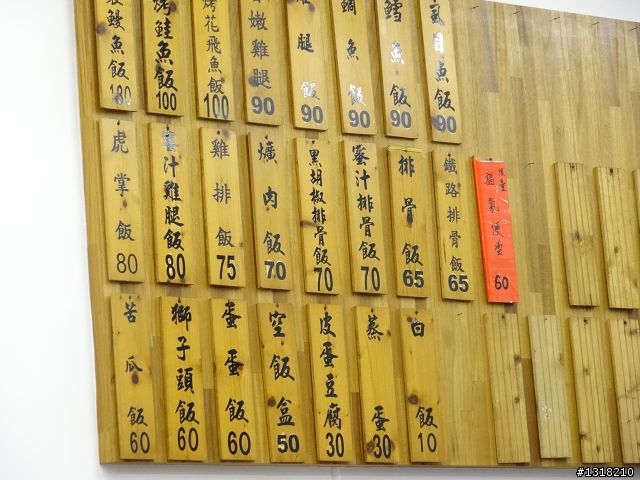 鰻魚飯 180
烤鮭魚飯 100
烤花飛魚飯 100
嫩雞腿 90
腿飯 90
鯛魚飯 90
鱈魚飯 90
虱目魚飯 90
虎掌飯 80
蜜汁雞腿飯 80
雞排飯 75
爌肉飯 70
黑胡椒排骨飯 70
蜜汁排骨飯 70
排骨飯 65
鐵路排骨飯 65
60
苦瓜飯 60
獅子頭飯 60
蛋蛋飯 60
空飯盒 50
皮蛋豆腐 30
蒸蛋 30
白飯 10
#1318210